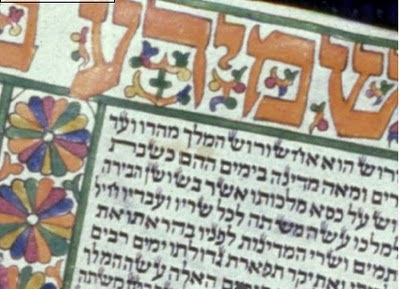 הוא אחשורוש המלך מהדו ועד
ומאה מדינה בימים ההם כשבת
על כסא מלכותו אשר בשושן הבירה
למלכו עשה משתה לכל שריו ועבדיו חיל
ושרי המדינות לפניו בהראתו את
ואת יקר תפארת גדולתו ימים רבים
האלה עשה המלך
משתה